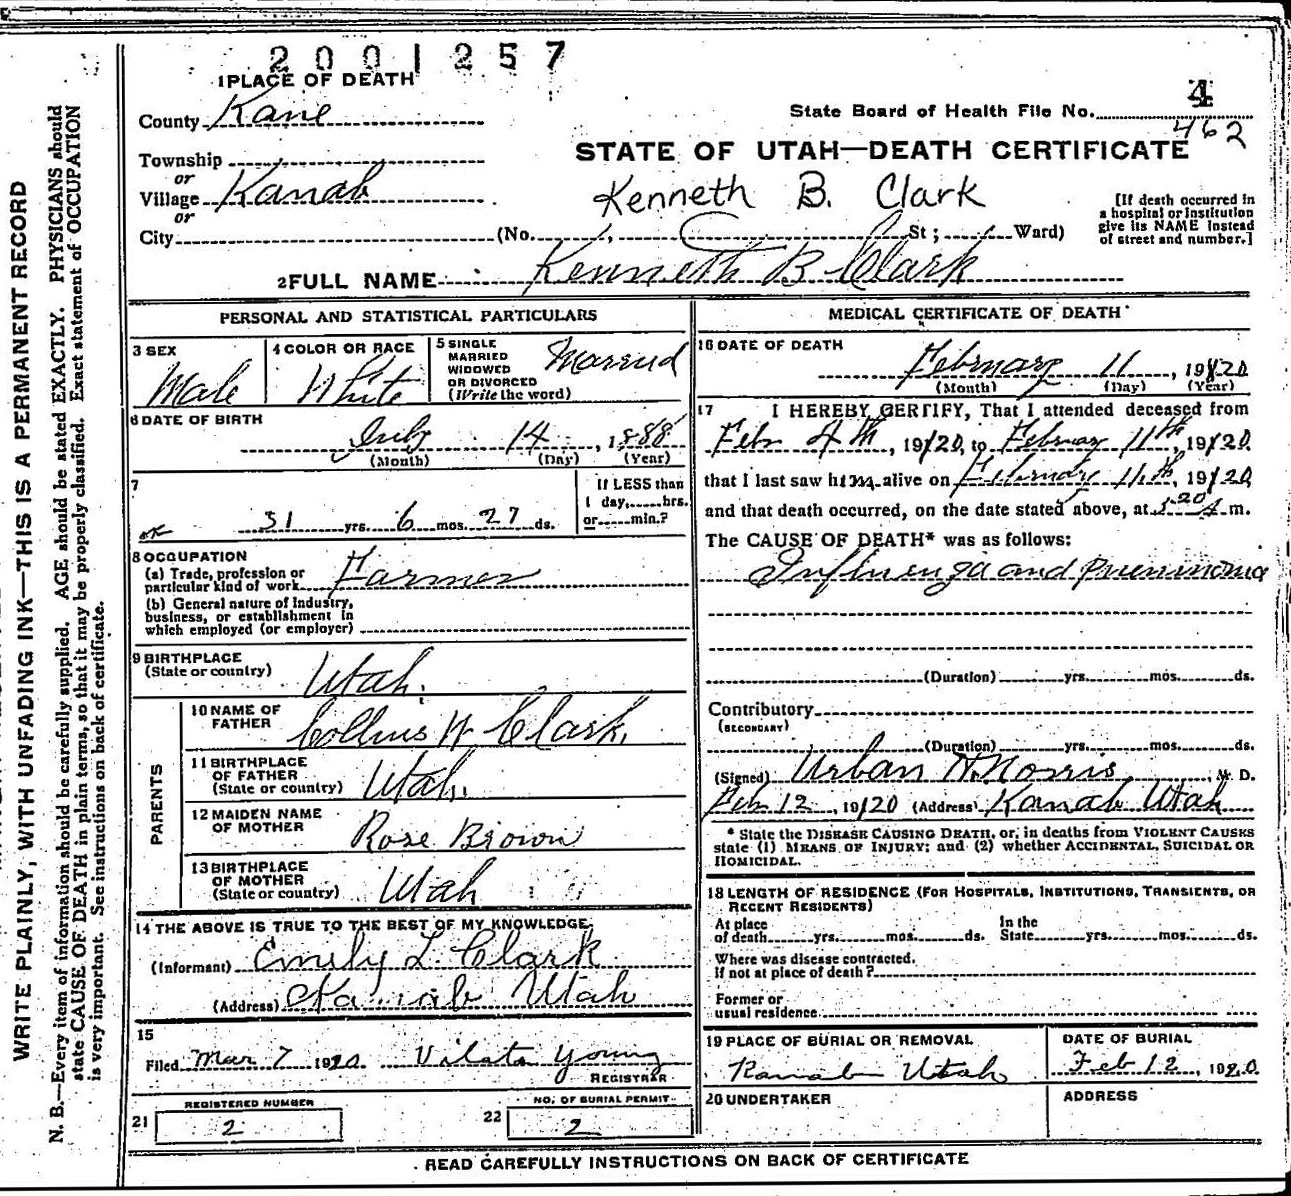 2001257
1 PLACE OF DEATH
County Kane
State Board of Health File No. 4
462
Township
or
Village Kanab
or
City (No. , St ; Ward)
STATE OF UTAH—DEATH CERTIFICATE
Kenneth B. Clark
[If death occurred in
a hospital or institution
give its NAME instead
of street and number.]
2 FULL NAME Kenneth B Clark
PERSONAL AND STATISTICAL PARTICULARS
3 SEX
Male
4 COLOR OR RACE
White
5 SINGLE
MARRIED
WIDOWED
OR DIVORCED
(Write the word)
Married
6 DATE OF BIRTH
July 14, 1888
(Month) (Day) (Year)
7
31 yrs. 6 mos. 27 ds.
If LESS than
1 day, hrs.
or min.?
8 OCCUPATION
(a) Trade, profession or
particular kind of work Farmer
(b) General nature of industry,
business, or establishment in
which employed (or employer)
9 BIRTHPLACE
(State or country)
Utah.
PARENTS
10 NAME OF
FATHER
Collins W Clark.
11 BIRTHPLACE
OF FATHER
(State or country)
Utah.
12 MAIDEN NAME
OF MOTHER
Rose Brown
13 BIRTHPLACE
OF MOTHER
(State or country)
Utah
14 THE ABOVE IS TRUE TO THE BEST OF MY KNOWLEDGE
(Informant) Emily L. Clark
(Address) Kanab Utah
15
Filed Mar 7 1920 Vilate Young
REGISTRAR
21 REGISTERED NUMBER
2
22 NO. OF BURIAL PERMIT
2
MEDICAL CERTIFICATE OF DEATH
16 DATE OF DEATH
February 11, 1920
(Month) (Day) (Year)
17 I HEREBY CERTIFY, That I attended deceased from
Feb 4th, 1920, to February 11th, 1920
that I last saw him alive on February 11th, 1920
and that death occurred, on the date stated above, at m.
The CAUSE OF DEATH* was as follows:
Influenza and pneumonia
(Duration) yrs. mos. ds.
Contributory
(SECONDARY)
(Duration) yrs. mos. ds.
(Signed) Urban W. Norris, M. D.
Feb 12, 1920 (Address) Kanab Utah
* State the DISEASE CAUSING DEATH, or, in deaths from VIOLENT CAUSES
state (1) MEANS OF INJURY; and (2) whether ACCIDENTAL, SUICIDAL OR
HOMICIDAL.
18 LENGTH OF RESIDENCE (FOR HOSPITALS, INSTITUTIONS, TRANSIENTS, OR
RECENT RESIDENTS)
At place In the
of death yrs. mos. ds. State yrs. mos. ds.
Where was disease contracted,
If not at place of death?
Former or
usual residence
19 PLACE OF BURIAL OR REMOVAL
Kanab Utah
DATE OF BURIAL
Feb 12, 1920
20 UNDERTAKER
ADDRESS
READ CAREFULLY INSTRUCTIONS ON BACK OF CERTIFICATE
WRITE PLAINLY, WITH UNFADING INK—THIS IS A PERMANENT RECORD
N. B.—Every item of information should be carefully supplied. AGE should be stated EXACTLY. PHYSICIANS should
state CAUSE OF DEATH in plain terms, so that it may be properly classified. Exact statement of OCCUPATION
is very important. See instructions on back of certificate.